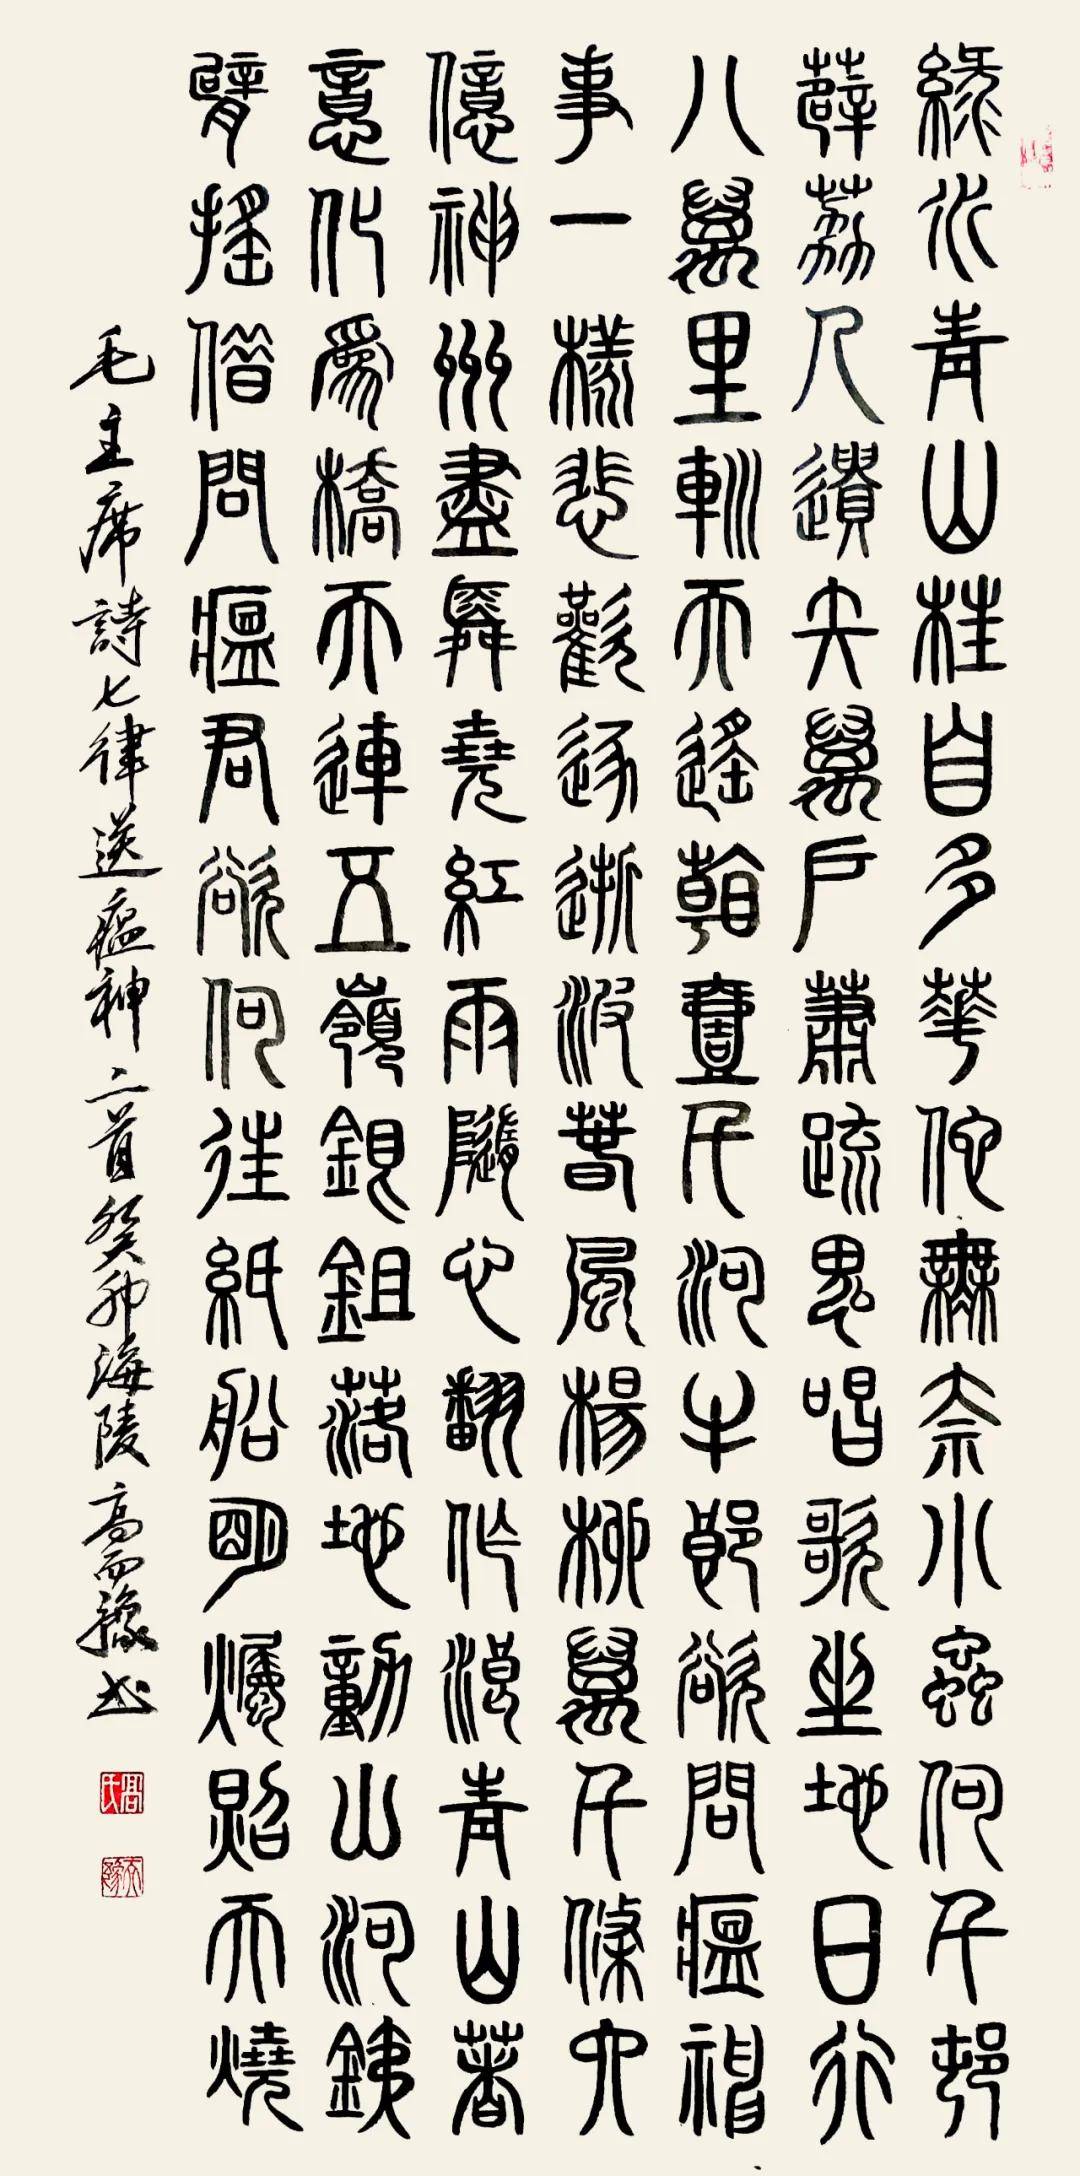 綠水青山枉自多華佗無奈小蟲何千邨
薜荔人遺矢萬戶蕭疏鬼唱歌坐地日行
八萬里巡天遙看壹千河牛郎欲問瘟神
事一樣悲歡逐逝波春風楊柳萬千條六
億神州盡舜堯紅雨隨心翻作浪青山著
意化為橋天連五嶺銀鉏落地動山河鐵
臂搖借問瘟君欲何往紙船明燭照天燒
毛主席詩七律送瘟神二首癸卯海陵高而豫書
高氏